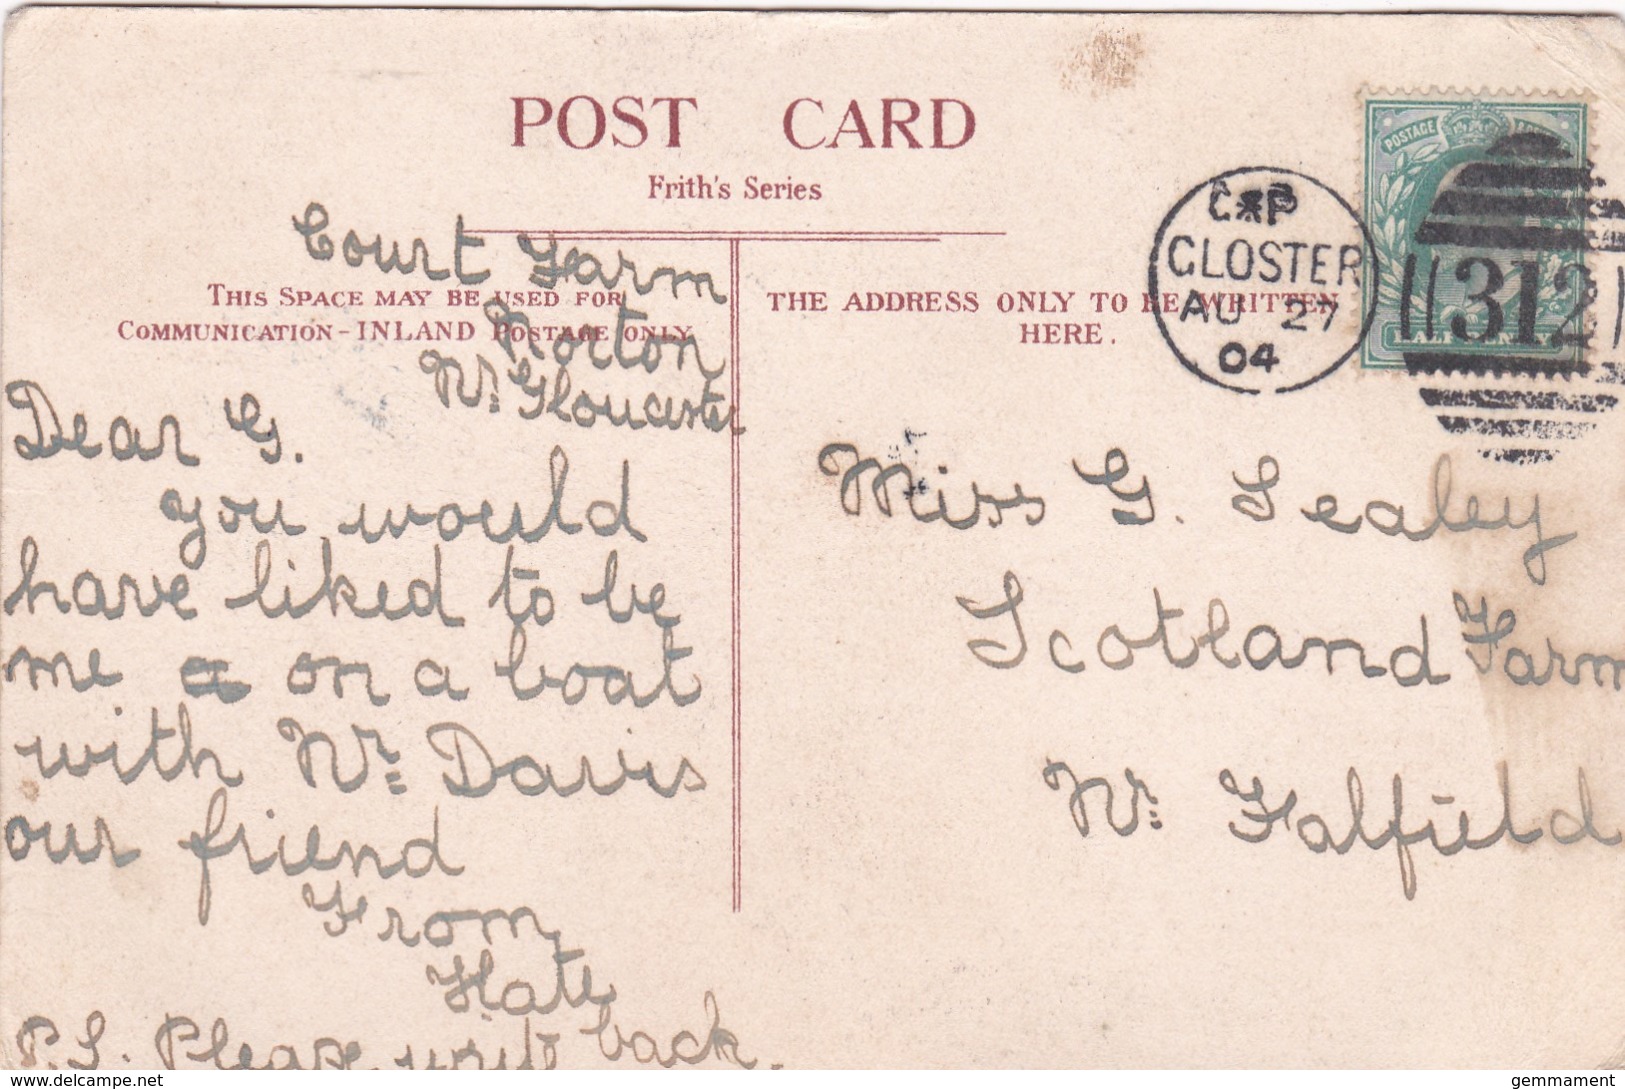 POST CARD
Frith's Series
THIS SPACE MAY BE USED FOR
COMMUNICATION - INLAND POSTAGE ONLY
THE ADDRESS ONLY TO BE WRITTEN
HERE.
GLOSTER
AU 27
04
312
POSTAGE
HALFPENNY
Court Farm
Norton
Nr. Gloucester
Dear G.
you would
have liked to be
me a on a boat
with Mr. Davis
our friend
From
Kate
P.S. Please write back.
Miss G. Sealey
Scotland Farm
Nr. Falfield
delcampe.net
gemmament